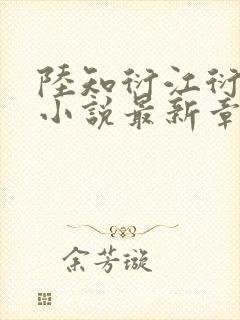 陸知衍江衍
小說最新章
余芳璇